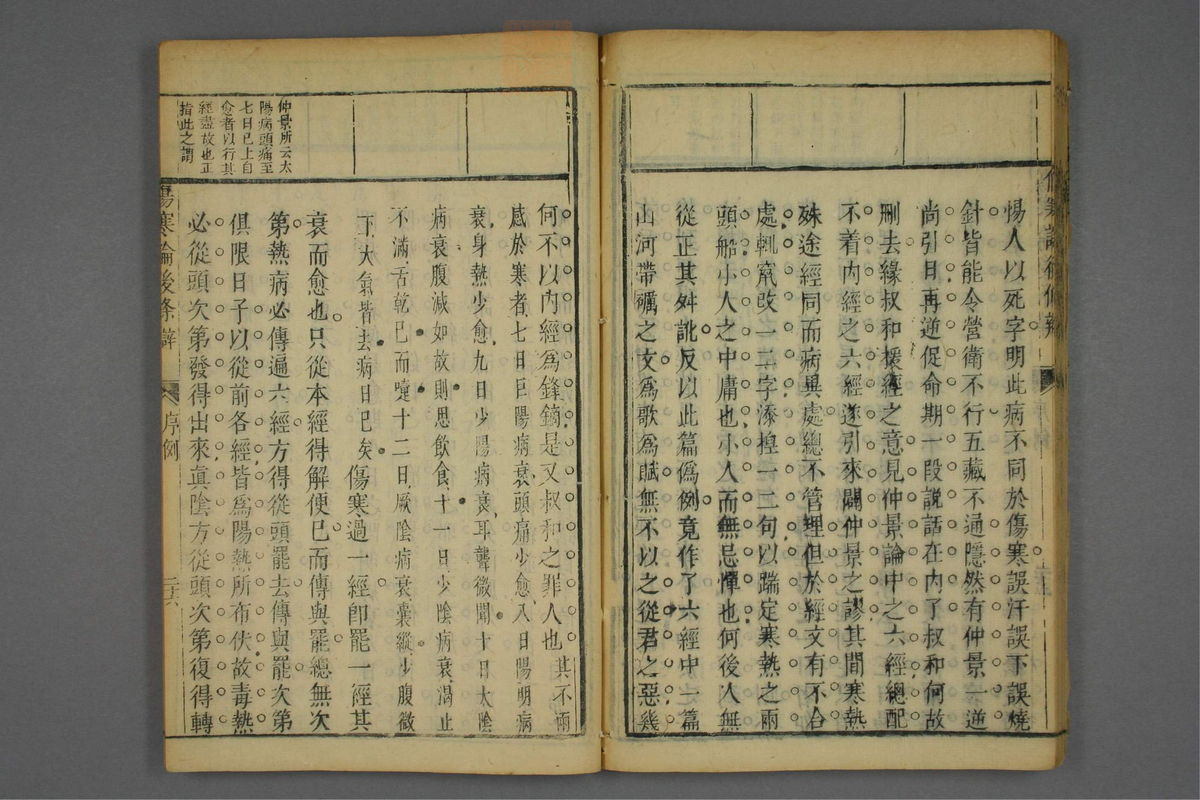 惕人以死字明此病不同於傷寒誤汗誤下誤燒
針皆能令營衛不行五藏不通隱然有仲景一逆
尚引日再逆促命期一段説話在内了叔和何故
删去緣叔和援經之意見仲景論中之六經總配
不着内經之六經遂引來闢仲景之謬其間寒熱
殊途經同而病異處總不管理但於經文有不合
處輒竄改一二字添揑一二句以踹定寒熱之兩
頭船小人之中庸也小人而無忌憚也何後人無
從正其舛訛反以此篇僞例竟作了六經中一篇
山河帶礪之文爲歌爲賦無不以之從君之惡幾
何不以内經爲鋒鏑是又叔和之罪人也其不兩
感於寒者七日巨陽病衰頭痛少愈八日陽明病
衰身熱少愈九日少陽病衰耳聾微聞十日太陰
病衰腹減如故則思飲食十一日少陰病衰渴止
不滿舌乾已而嚏十二日厥陰病衰囊縱少腹微
下大氣皆去病日已矣傷寒過一經卽罷一經其
衰而愈也只從本經得解便已而傳與罷總無次
第熱病必傳遍六經方得從頭罷去傳與罷次第
俱限日子以從前各經皆爲陽熱所布伏故毒熱
必從頭次第發得出來眞陰方從頭次第復得轉
仲景所云太
陽病頭痛至
七日已上自
愈者以行其
經盡故也正
指此之謂
傷寒論後条辯
序例
二六